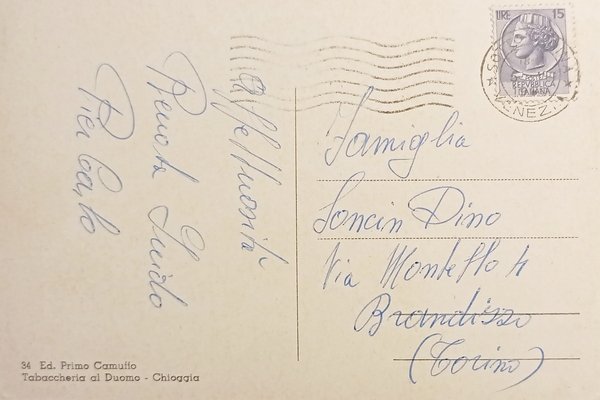 LIRE 15
REPUBBLICA
ITALIANA
Affettuosità
Renata Guido
Pier Carlo
Famiglia
Soncin Dino
Via Montello 4
Brandizzo
(Torino)
34 Ed. Primo Camuffo
Tabaccheria al Duomo - Chioggia